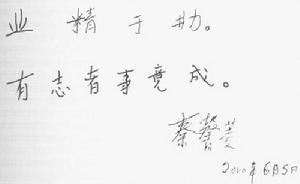 业精于勤。
有志者事竟成。
秦馨菱
2000年6月5日